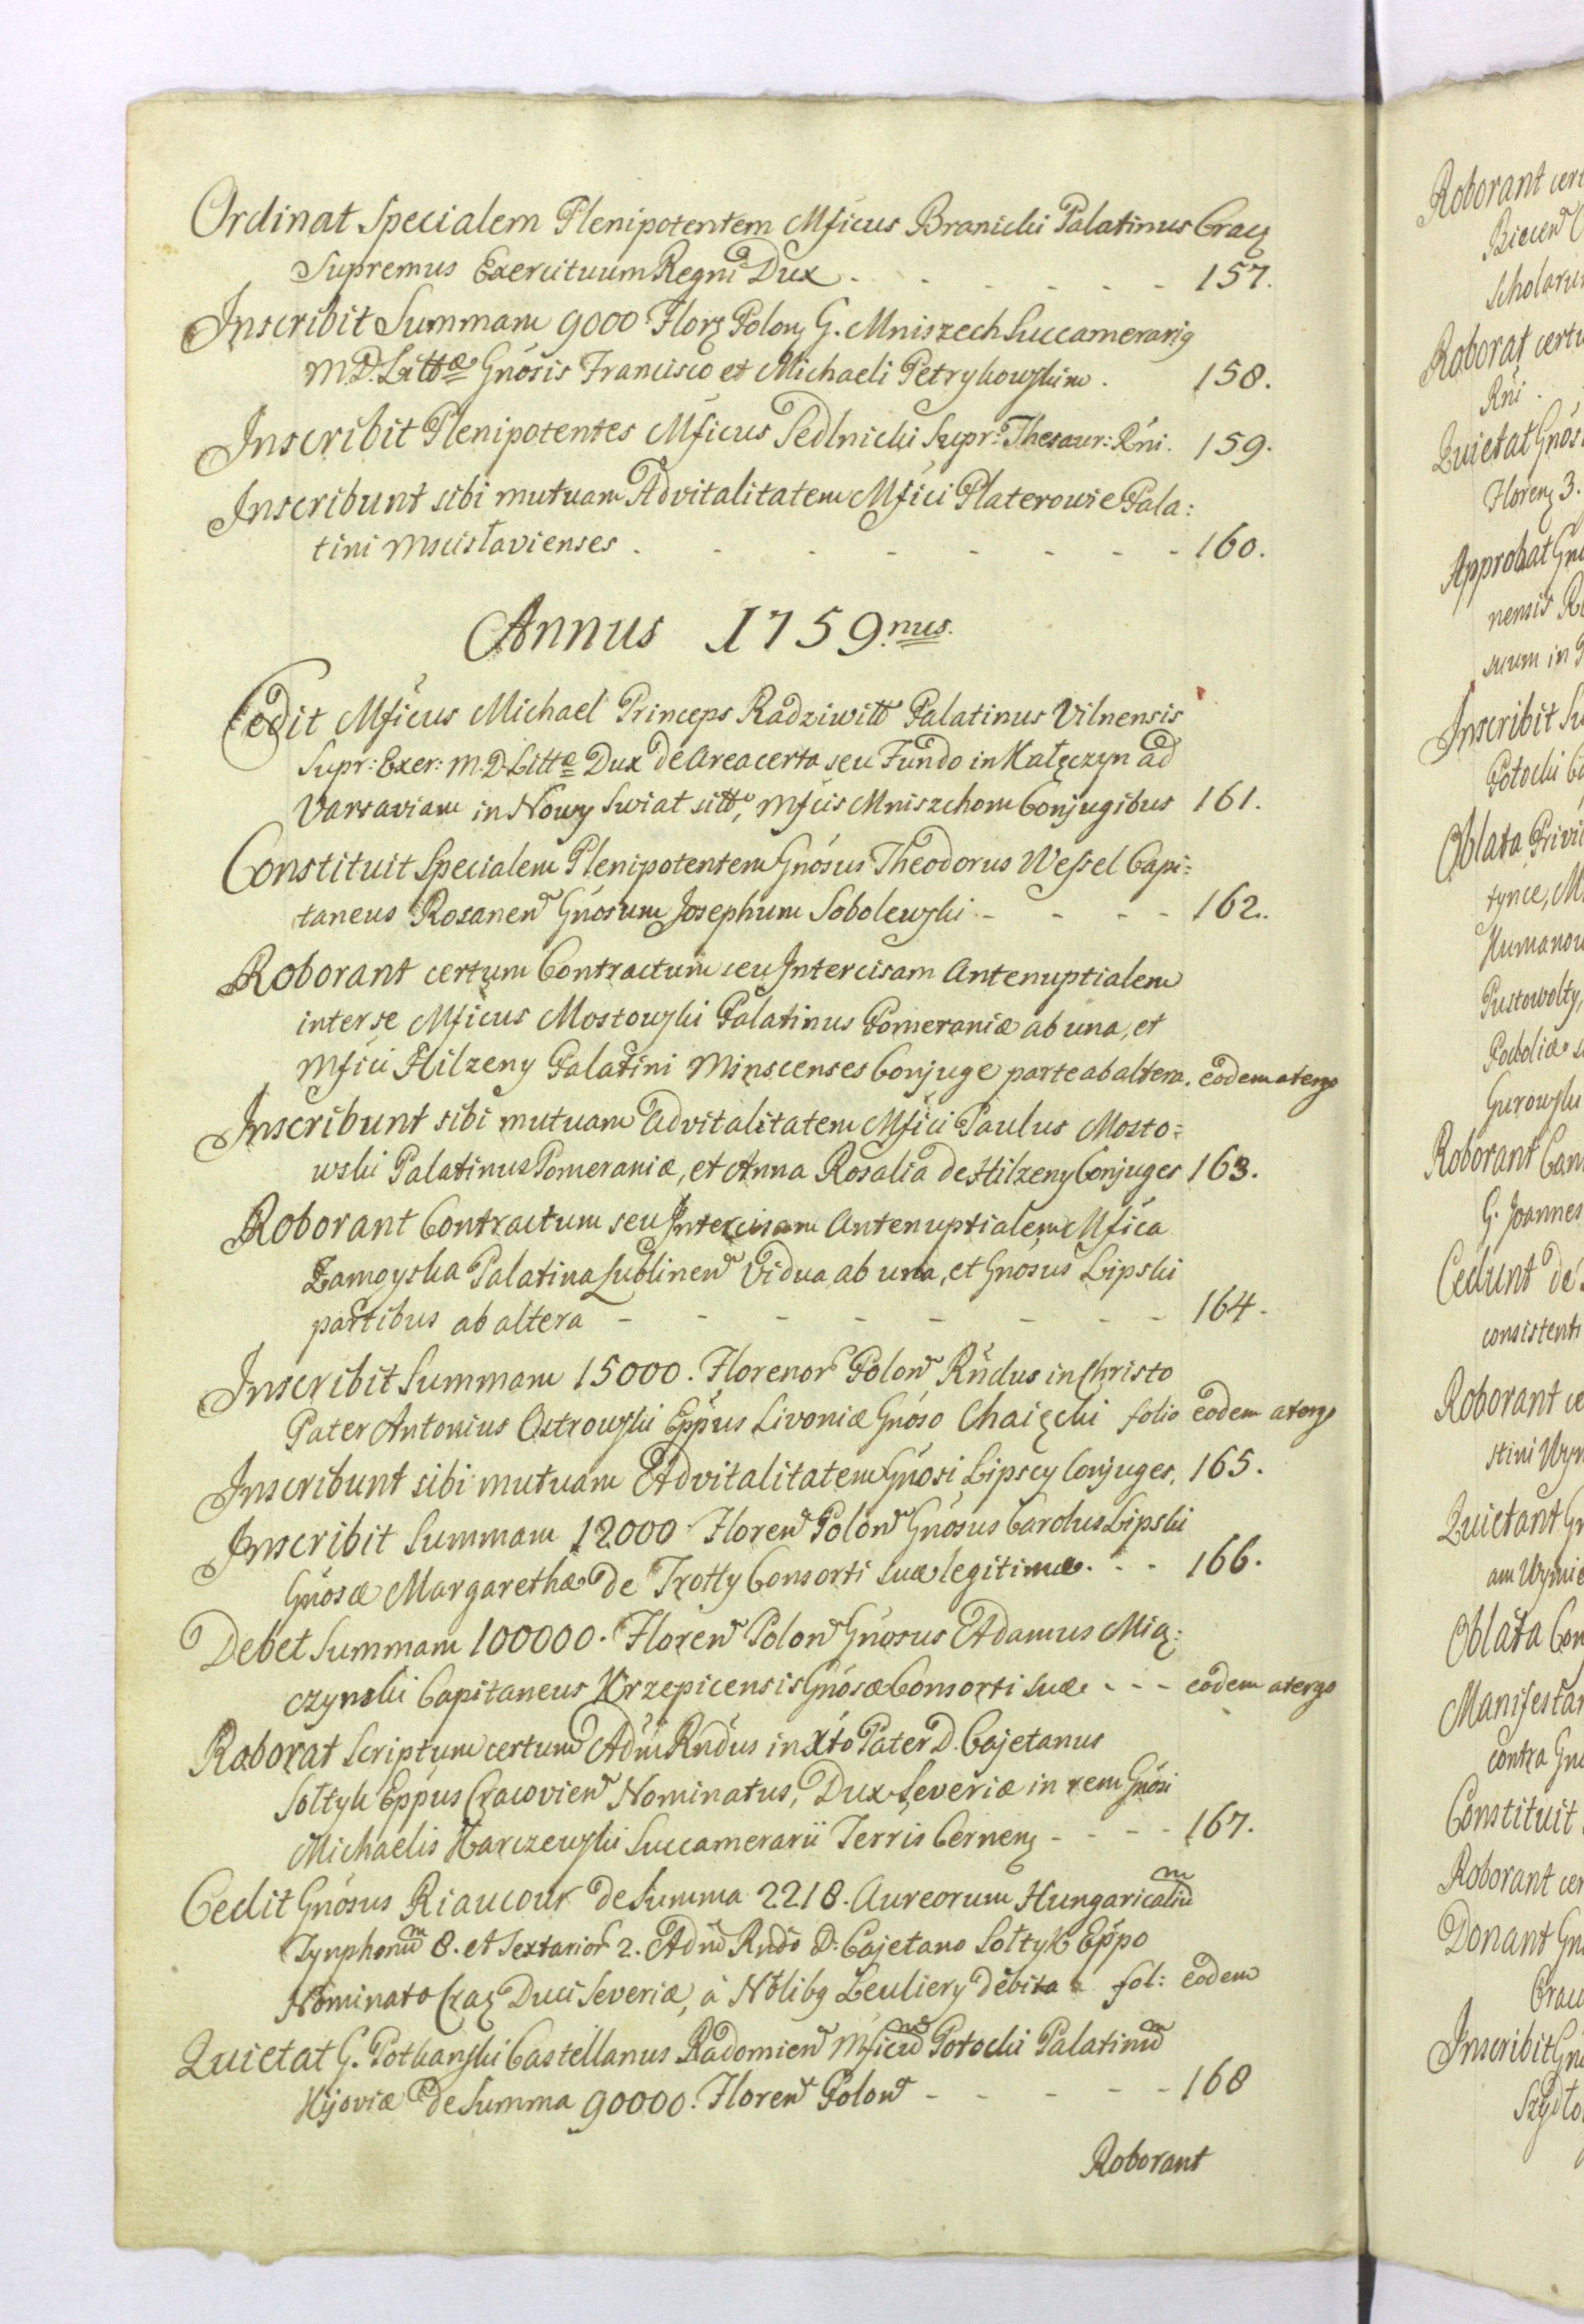 Ordinat Specialem Plenipotentem Mficus Branicki Palatinus Crac
Supremus Exercituum Regni Dux . - - - - - 157.
Inscribit Summam 9000 Flor Polon G. Mniszech Succamerarig
M.D. Littæ Gnosis Francisco et Michaeli Petrykowskim . 158.
Inscribit Plenipotentes Mficus Sedlnicki Supr: Thesaur: Rńi. 159.
Inscribunt sibi mutuam Advitalitatem Mfici Platerowie Pala:
tini Mscisłavienses . - - - - - - - 160.
Annus 1759.nus.
Cedit Mficus Michael Princeps Radziwiłł Palatinus Vilnensis
Supr: Exer: M.D. Littæ Dux de Area certa seu Fundo in Kałęczyn ad
Varsaviam in Nowy Swiat sitto, Mfcis Mniszchom Conjugibus 161.
Constituit Specialem Plenipotentem Gnosus Theodorus Wessel Capi:
taneus Rosanen Gnosum Josephum Sobolewski - - - - 162.
Roborant certum Contractum seu Intercisam Antenuptialem
inter se Mficus Mostowski Palatinus Pomeraniæ ab una, et
Mfici Hilzeny Palatini Minscenses Conjuge parte ab altera. eodem atergo
Inscribunt sibi mutuam Advitalitatem Mfici Paulus Mosto:
wski Palatinus Pomeraniæ, et Anna Rosalia de Hilzeny Conjuges 163.
Roborant Contractum seu Intercisam Antenuptialem Mfica
Zamoyska Palatina Lublinen Vidua, ab una, et Gnosus Lipski
partibus ab altera - - - - - - - - 164-
Inscribit Summam 15000. Florenor Polon Rńdus in Christo
Pater Antonius Ostrowski Eppus Livoniæ Gnoso Chaięcki folio eodem atergo
Inscribunt sibi mutuam Advitalitatem Gnosi Lipscy Conjuges. 165.
Inscribit Summam 12000 Floren Polon Gnosus Carolus Lipski
Gnosæ Margarethæ de Trotty Consorti suæ legitimæ. - - 166.
Debet Summam 100000. Floren Polon Gnosus Adamus Mią:
czynski Capitaneus Krzepicensis Gnosæ Consorti suæ - - - eodem atergo
Roborat Scriptum certum Adm Rndus in Xto Pater D. Cajetanus
Sołtyk Eppus Cracovien Nominatus, Dux Severiæ in rem Gnosi
Michaelis Karczewski Succamerarii Terris Cernen - - - - 167.
Cedit Gnosus Riaucour de Summa 2218. Aureorum Hungaricaliu m
Tynphonu m 8. et Sextarior 2. Adm Rndo D. Cajetano Sołtyk Eppo
Nominato Crac Duci Severiæ, à Nblibg Leuliery debita - fol: eodem
Quietat G. Potkanski Castellanus Radomien Mficu m Potocki Palatinu m
Kijoviæ de Summa 90000. Floren Polon - - - - - 168
Roborant
Roborant cert
Biecen
Scholaru
Roborat certu
Rńi .
Quietat Gnos
Floren 3.
Approbat Gno
nensis R
suum in
Inscribit Su
Potocki
Oblata Privi
tynce, M
Humanow
Pustowolty,
Podoliæ
Gurowski
Roborant
G. Joannes
Cedunt de
consistent
Roborant ce
stini Wy
Quietant Gn
Oblata Con
Manifestan
contra Gno
Constituit
Roborant cer
Donant Gn
Crac
Inscribit Gn
Szydło